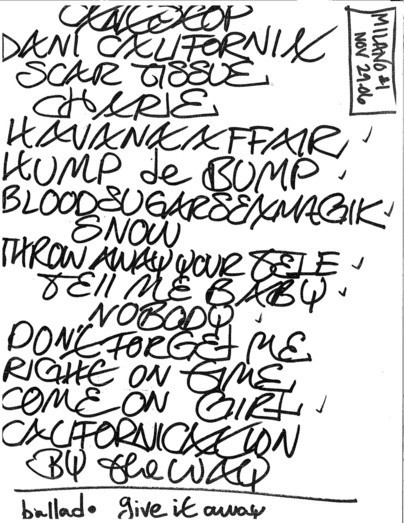 CANTSTOP
DANI CALIFORNIA
SCAR TISSUE
CHARLIE
HAVANA AFFAIR ✓
HUMP de BUMP ✓
BLOODSUGARSEXMAGIK ✓
SNOW
THROW AWAY YOUR TELE ✓
TELL ME BABY ✓
NOBODY ✓
DON'T FORGET ME
RIGHT ON TIME
COME ON GIRL ✓
CALIFORNICATION
BY the WAY
ballad • give it away
MILANO #1
NOV 29.06